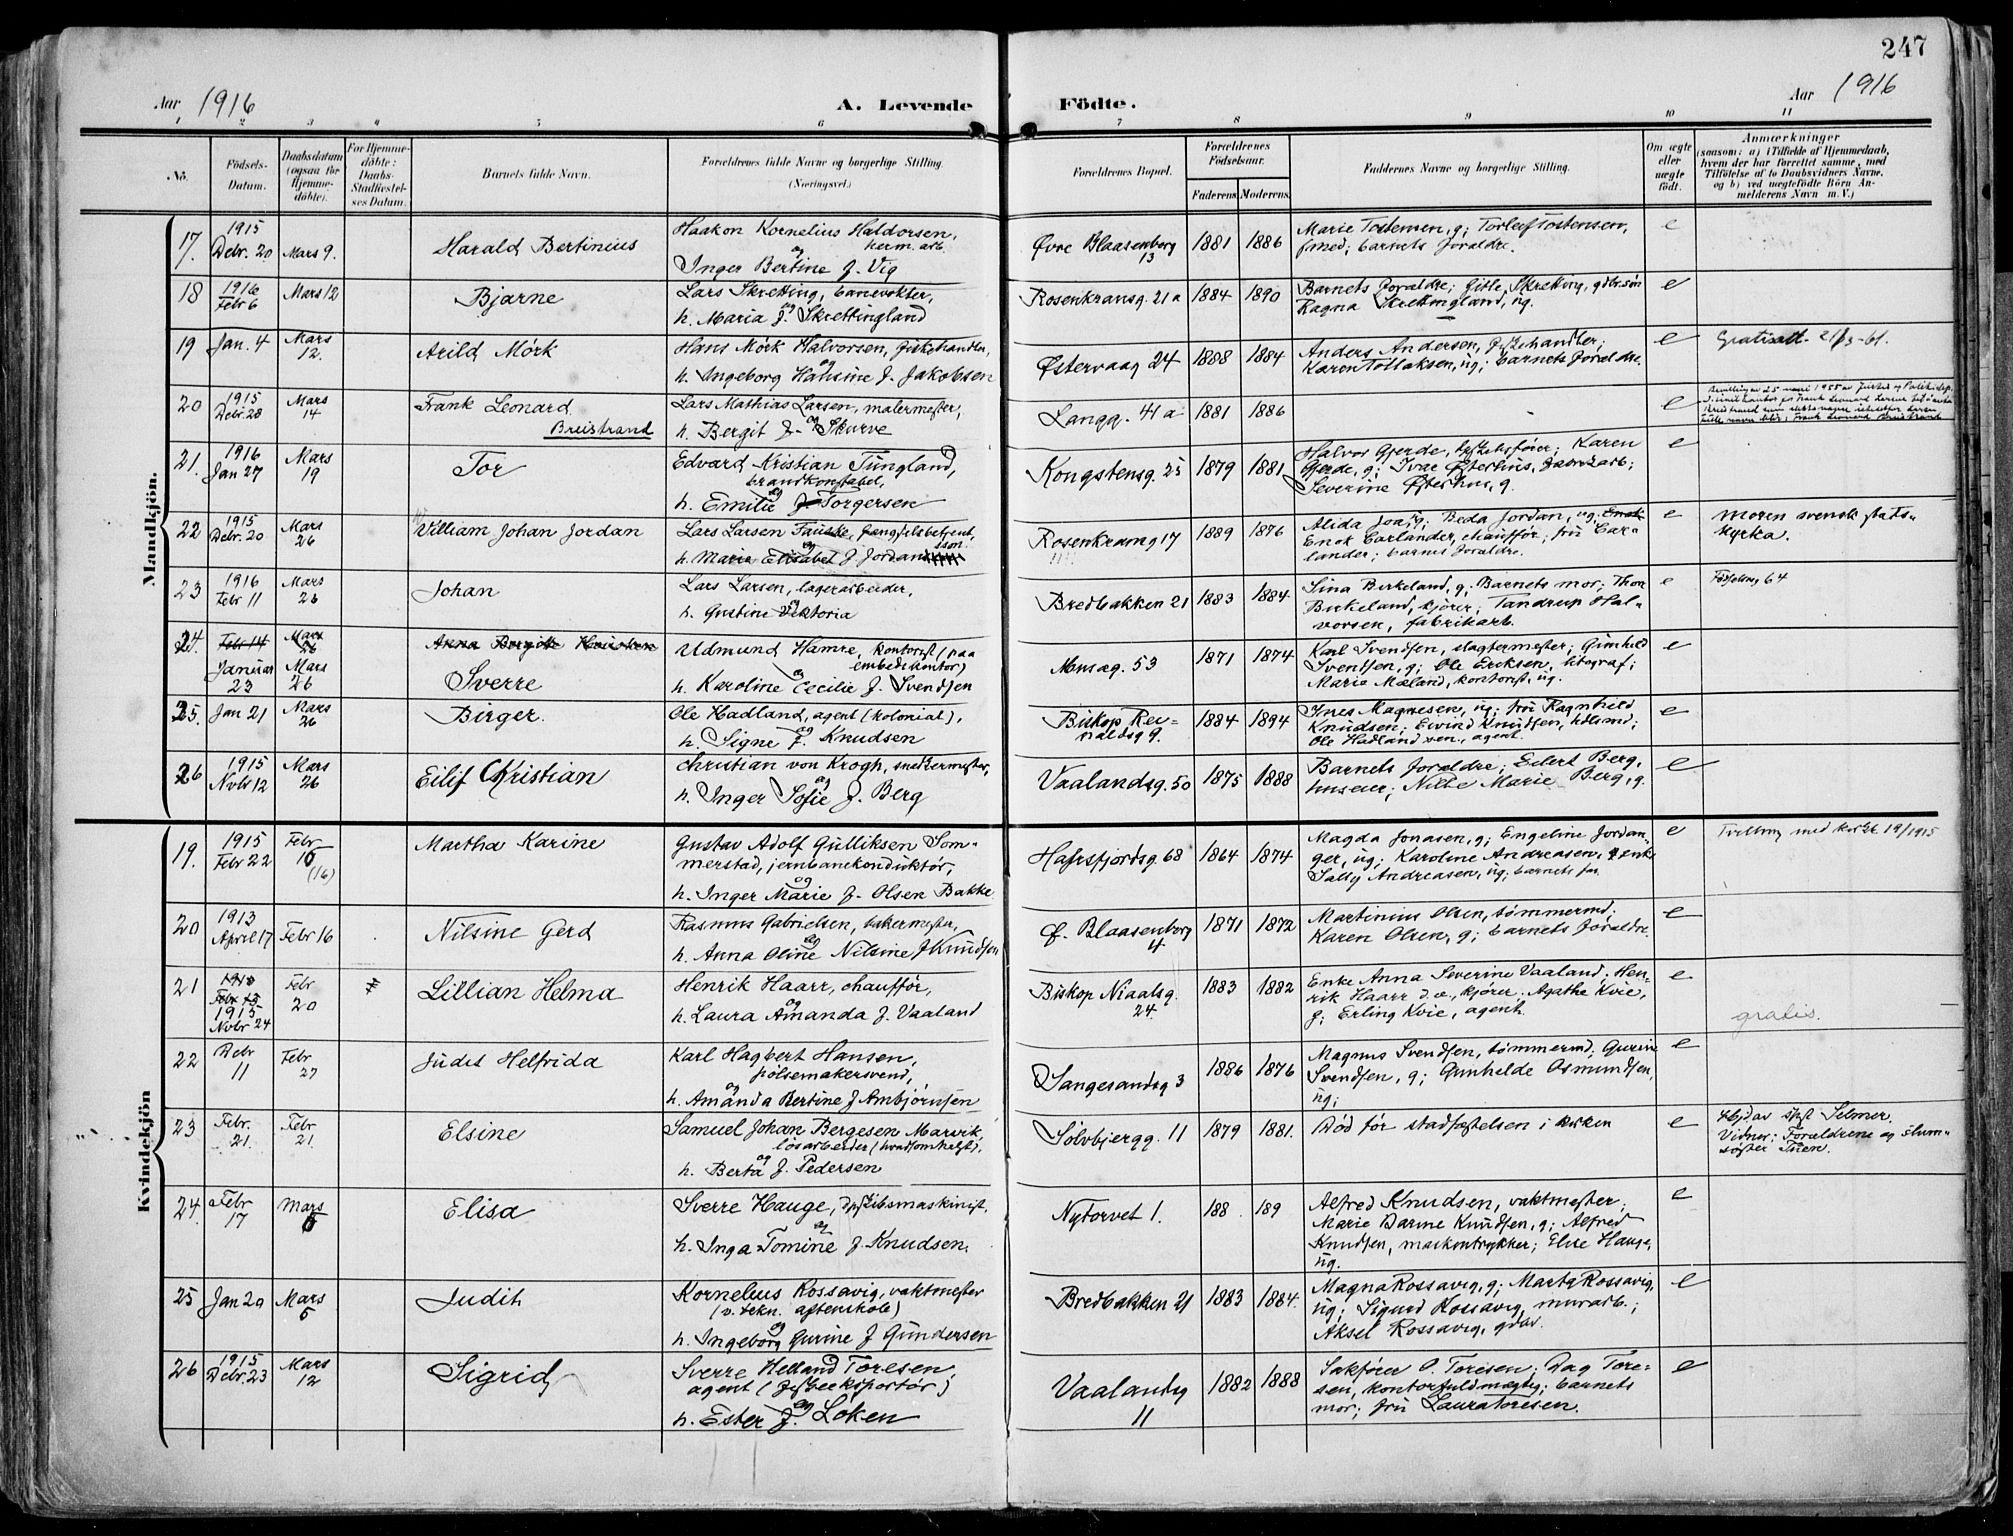 247
Aar 1916
A. Levende Födte.
Aar 1916
1 2 3 4 5 6 7 8 9 10 11
No.
Födsels-Datum.
Daabsdatum (ogsaa for Hjemme-döbte).
For Hjemme-döbte: Daabs-Stadfæstel-ses Datum.
Barnets fulde Navn.
Forældrenes fulde Navne og borgerlige Stilling. (Næringsvei.)
Forældrenes Bopæl.
Forældrenes Födselsaar.
Faderens. Moderens.
Faddernes Navne og borgerlige Stilling.
Om ægte eller uægte födt.
Anmærkninger
(saasom: a) i Tilfælde af Hjemmedaab,
hvem der har forrettet samme, med
Tilföielse af to Daabsvidners Navne,
og b) ved uægtefödte Börn An-
melderens Navn m. V.)
Mandkjön.
17. 1915 Debr. 20 Mars 9. Harald Bertinius
Haakon Kornelius Haldorsen, herm. arb.
og
Inger Bertine f. Vig
Øvre Blaasenborg 13 1881 1886
Marie Tostensen, g; Torleif Tostensen,
smed; barnets foraldre. e
18 1916 Febr 6 Mars 12 Bjarne
Lars Skretting, banevokter,
og
h. Maria f. Skrettingland
Rosenkransg. 21 a 1884 1890
Barnets foraldre; Gitle Skretting, gdbr.søn
Ragna Skrettingland, ug. e
19 Jan. 4 Mars 12. Arild Mörk
Hans Mörk Halvorsen, fiskehandler,
og
h. Ingeborg Hansine f. Jakobsen
Østervaag 24 1888 1884
Anders Andersen, fiskehandler;
Karen Tollaksen, ug; barnets foraldre. e
Gratisatt. 21/3-61.
20 1915 Debr. 28 Mars 14 Frank Leonard
Breistrand
Lars Mathias Larsen, malermester,
og
h. Bergit f. Skurve
Langg. 41 a 1881 1886 e
21. 1916 Jan 27 Mars 19 Tor
Edvard Kristian Tungland,
brandkonstabel,
og
h. Emilie f Torgersen
Kongstensg. 25 1879 1881
Halvor Gjerde, skibsfører; Karen
Gjerde, g; Ivar Østerhus, fabrikarb;
Severine Østerhus, g. e
22 1915 Debr. 20 Mars 26 William Johan Jordan
Lars Larsen Fauske, fængselsbetjent,
og
h. Maria Elisabet f Jordansson
Rosenkransg 17 1889 1876
Alida Joa, g; Beda Jordan, ug, Enok
Enok Carlander, chauffør; fru Car-
lander; barnets foraldre. e
Moren svensk stats-
kyrka.
23 1916 Febr 11 Mars 26 Johan
Lars Larsen, lagerarbeider,
og
h. Gustine Viktoria
Bredbakken 21 1883 1884
Sina Birkeland, g; Barnets mor; Thon
Birkeland, kjører; Tandrup Hal-
vorsen, fabrikarb. e
Fødselsn. 64
24. Febr 14 Mars 26 Anna Bergitte Hausken
Januar 23 Mars 26 Sverre
Udmund Hamre, kontorist (paa
embedskontor)
og
h. Karoline Cecilie f. Svendsen
Mosag. 53 1871 1874
Karl Svendsen, slagtermester; Gunhild
Svendsen, g; Ole Eriksen, litograf;
Maria Mæland, kontorist, ug. e
25. Jan 21 Mars 26 Birger.
Ole Hadland, agent (kolonial),
og
h. Signe f. Knudsen
Biskop Rei-
naldsg 9. 1884 1894
Ines Magnesen, ug; fru Ragnhild
Knudsen; Eivind Knudsen, hdlsmd;
Ole Hadland sen., agent. e
26 1915 Novbr 12 Mars 26 Eilif Christian
Christian von Krogh, snedkermester,
og
h. Inger Sofie f. Berg
Vaalandsg. 50 1875 1888
Barnets foraldre; Eilert Berg,
huseier; Nille Marie Berg, g. e
Kvindekjön
19. 1915 Febr 22 Febr 16 (16) Martha Karine
Gustav Adolf Gulliksen Som-
merstad, jernbanekonduktør,
og
h. Inger Marie f. Olsen Bakke
Hafrsfjordsg. 68 1864 1874
Magda Jonasen, g; Engeline Jordan-
ger, ug; Karoline Andreasen, enke
Sally Andreasen, ug; barnets far. e
Tvilling med 19/1915
20 1913 April 17 Febr 16 Nilsine Gerd
Rasmus Gabrielsen, bakermester,
og
h. Anna Oline Nilsine f Knudsen
ø. Blaasenborg 4 1871 1872
Martinius Olsen, tømmermd;
Karen Olsen, g; barnets foraldre. e
21 Febr 13 1915 Novbr 24 Febr 20 Lillian Helma
Henrik Haarr, chauffør,
og
h. Laura Amanda f. Vaaland
Biskop Niaalsg. 24. 1883 1882
Enke Anna Severine Vaaland; Hen-
rik Haarr d.e., kjører; Agathe Kvie,
g; Erling Kvie, agent. e
gratis.
22 Debr 11 Febr 27 Judit Helfrida
Karl Hagbert Hansen,
pølsemakersvend,
og
h. Amanda Bertine f Ambjørnsen
Sangesandsg 3 1886 1876
Magnus Svendsen, tømmermd; Gurine
Svendsen, g; Gunhelde Osmundsen,
ug; e
23 Febr. 21. Febr 21. Elsine
Samuel Johan Bergesen Marvik,
løsarbeider (hvadsomhelst),
og
h. Berta f. Pedersen
Sølvbjergg. 11 1879 1881.
Død før stadfæstelsen i kirken e
Hjdøv. skst Selmer.
Vidner: Forældrene og slum-
søster Tuen.
24. Febr 17 Mars 5 Elisa
Sverre Hauge, dpskibsmaskinist,
og
h. Inga Tomine f. Knudsen.
Nytorvet 1. 188 . 189
Alfred Knudsen, vaktmester;
Marie Knudsen, g; Alfred
Knudsen, maskontrykker; Elise Hauge,
ug. e
25 Jan 29 Mars 5 Judith
Kornelius Rossavig, vaktmester
(v. tekn. aftenskole)
og
h. Ingeborg Gurine f Gundersen
Bredbakken 21 1883 1884.
Magna Rossavig, g; Marta Rossavig,
ug; Sigurd Rossavig, murarb.;
Aksel Rossavig, gdav. e
26 1915 Debr. 23 Mars 12 Sigrid
Sverre Helland Toresen,
agent (fiskeeksportør)
og
h. Ester f. Løken
Vaalandsg 11 1882 1888
Sakfører O. Toresen; Dag Tore-
sen, kontorfuldmægtig; barnets
mor; fru Laura Toresen. e